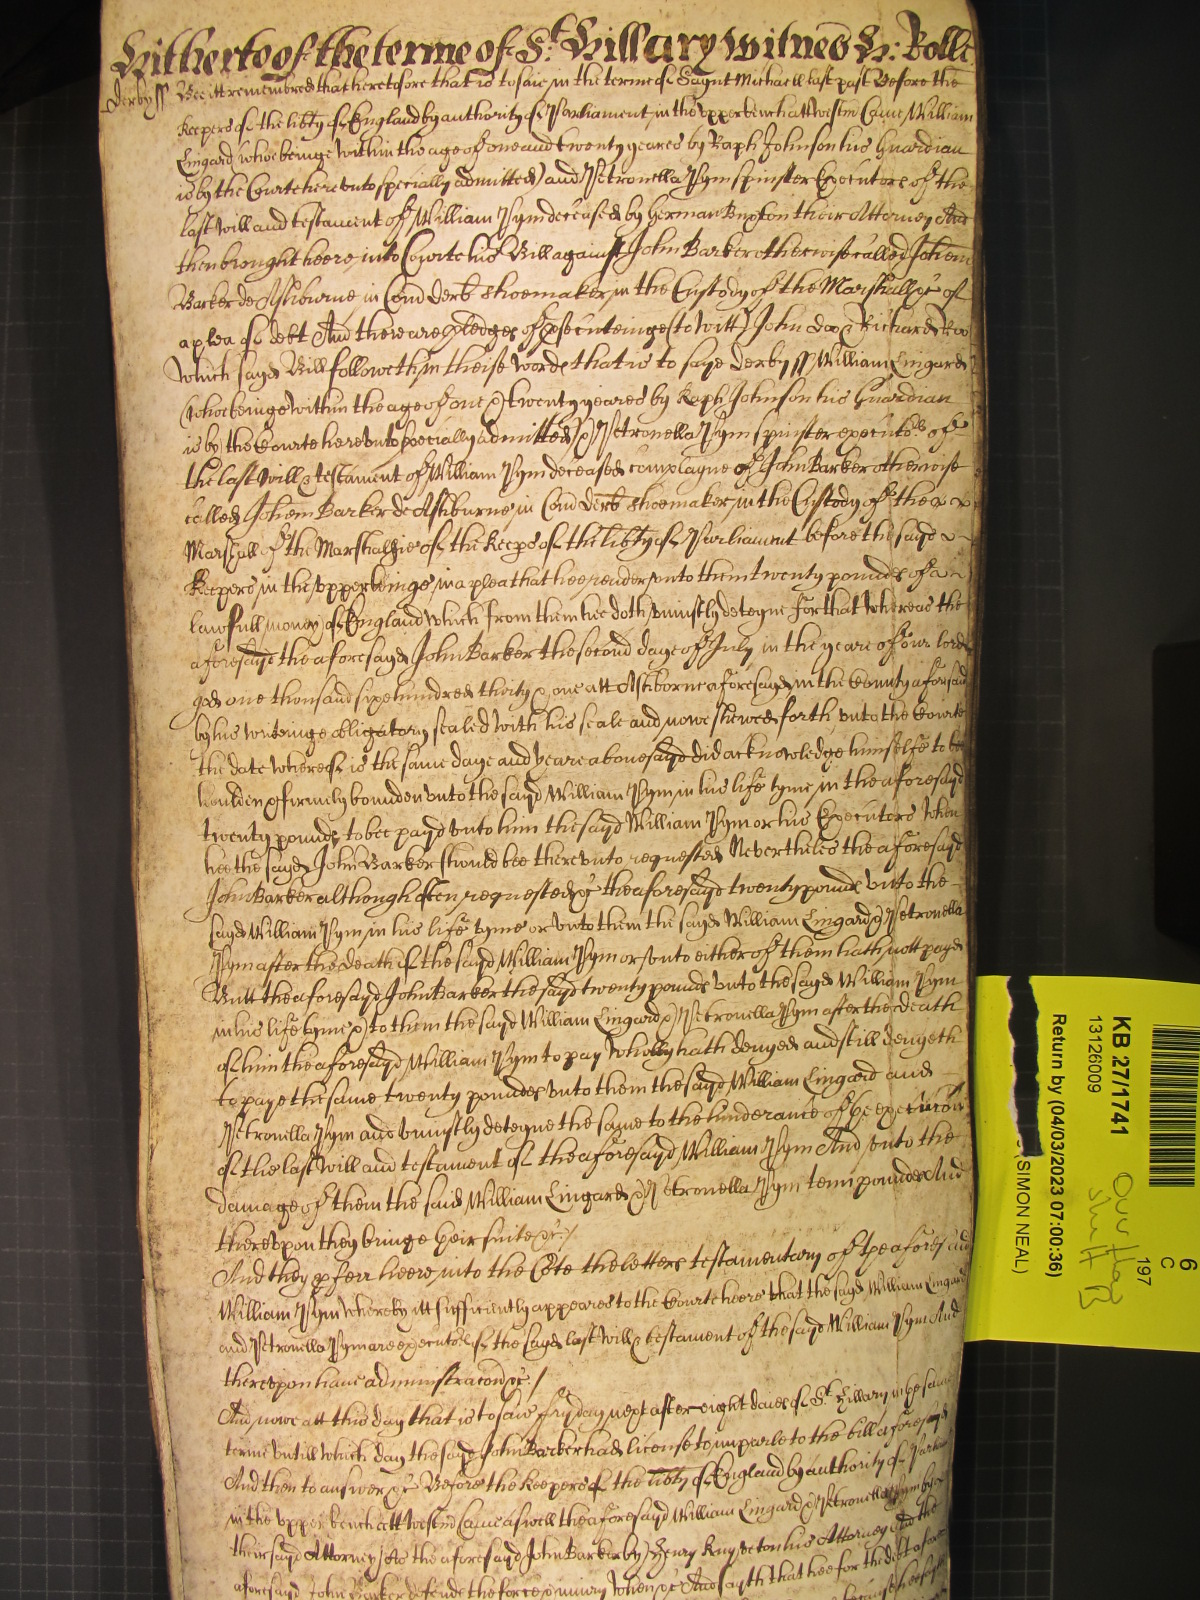 Hitherto of the terme of St. Hillary witnes H: Rolle
Derby ss Bee itt remembred that heretofore that is to saie in the terme of Saynt Michaell last past Before the
Keepers of the libty of England by authority of Parliament in the upper bench att Westm Came William
Lingard who beinge within the age of one and twenty yeares by Raph Johnson his Guardian
is by the Courte hereunto specially admitted) and Petronella Pym spinster Executors of the
last will and testament of William Pym deceased by German Buxton their Attorney And
then brought heere into Courte his Bill against John Barker otherwise called Johem
Barker de Ashburne in Com Derb shoemaker in the Custody of the Marshall &c of
a plea of debt And there are pledges of psecuteinge (to witt) John Doo & Richard Roo
Which sayd Bill followeth in theise words that is to saye Derby ss William Lingard
(who beinge within the age of one & twenty yeares by Raph Johnson his Guardian
is by the Courte hereunto specially admitted) & Petronella Pym spinster executors of
the last will & testament of William Pym deceased complayne of John Barker otherwise
called Johem Barker de Ashburne in Com Derb shoemaker in the Custody of the
Marshall of the Marshallsie of the Keeps of the libty of Parliament before the sayd
Keepers in the upper beinge in a plea that hee render unto them twenty pounds of
lawfull money of England which from them hee doth uniustly deteyne For that Whereas the
aforesayd the aforesayd John Barker the second daye of July in the yeare of our lord
god one thousand sixe hundred thirty & one att Ashborne aforesayd in the County aforesaid
by his writeinge obligatory sealed with his seale and nowe shewed forth unto the Courte
the date whereof is the same daye and yeare abovesayd did acknowledge himselfe to bee
houlden & firmely bounden unto the sayd William Pym in his life tyme in the aforesayd
twenty pounds to bee payd unto him the sayd William Pym or his Executors when
hee the sayd John Barker should bee thereunto requested Neverthelesse the aforesayd
John Barker although often requested &c the aforesayd twenty pounds unto the
sayd William Pym in his life tyme or unto them the sayd William Lingard & Petronella
Pym after the death of the sayd William Pym or unto either of them hath nott payd
Butt the aforesayd John Barker the sayd twenty pounds unto the sayd William Pym
in his life tyme & to them the sayd William Lingard & Petronella Pym after the death
of him the aforesayd William Pym to pay wholly hath denyed and still denyeth
to paye the same twenty pounds unto them the sayd William Lingard and
Petronella Pym and uniustly deteyne the same to the hinderance of the execution
of the last will and testament of the aforesayd William Pym And unto the
damage of them the said William Lingard & Petronella Pym tenn pounds And
thereupon they bringe their suite &c /
And they pferr heere into the Cote the letters testamentary of the aforesayd
William Pym whereby itt sufficiently appeares to the Courte heere that the sayd William Lingard
and Petronella Pym are executors of the sayd last will & testament of the sayd William Pym And
thereupon have administracon &c /
And nowe att this day that is to saie fryday next after eight daies of St Hillary in the same
terme untill which day the sayd John Barker had license to imparle to the bill aforesayd
And then to answer &c Before the Keepers of the libty of England by authority of Parliam
in the upper bench att Westm Came aswell the aforesayd William Lingard & Petronella Pym by
their sayd Attorney As the aforesayd John Barker by Henry Knyveton his Attorney And the
aforesayd John Barker defends the force & iniury when &c And sayth that hee for the debt afore
because hee sayth
6
C
197
KB 27/1741
13126009
Return by (04/03/2023 07:00:36)
(SIMON NEAL)